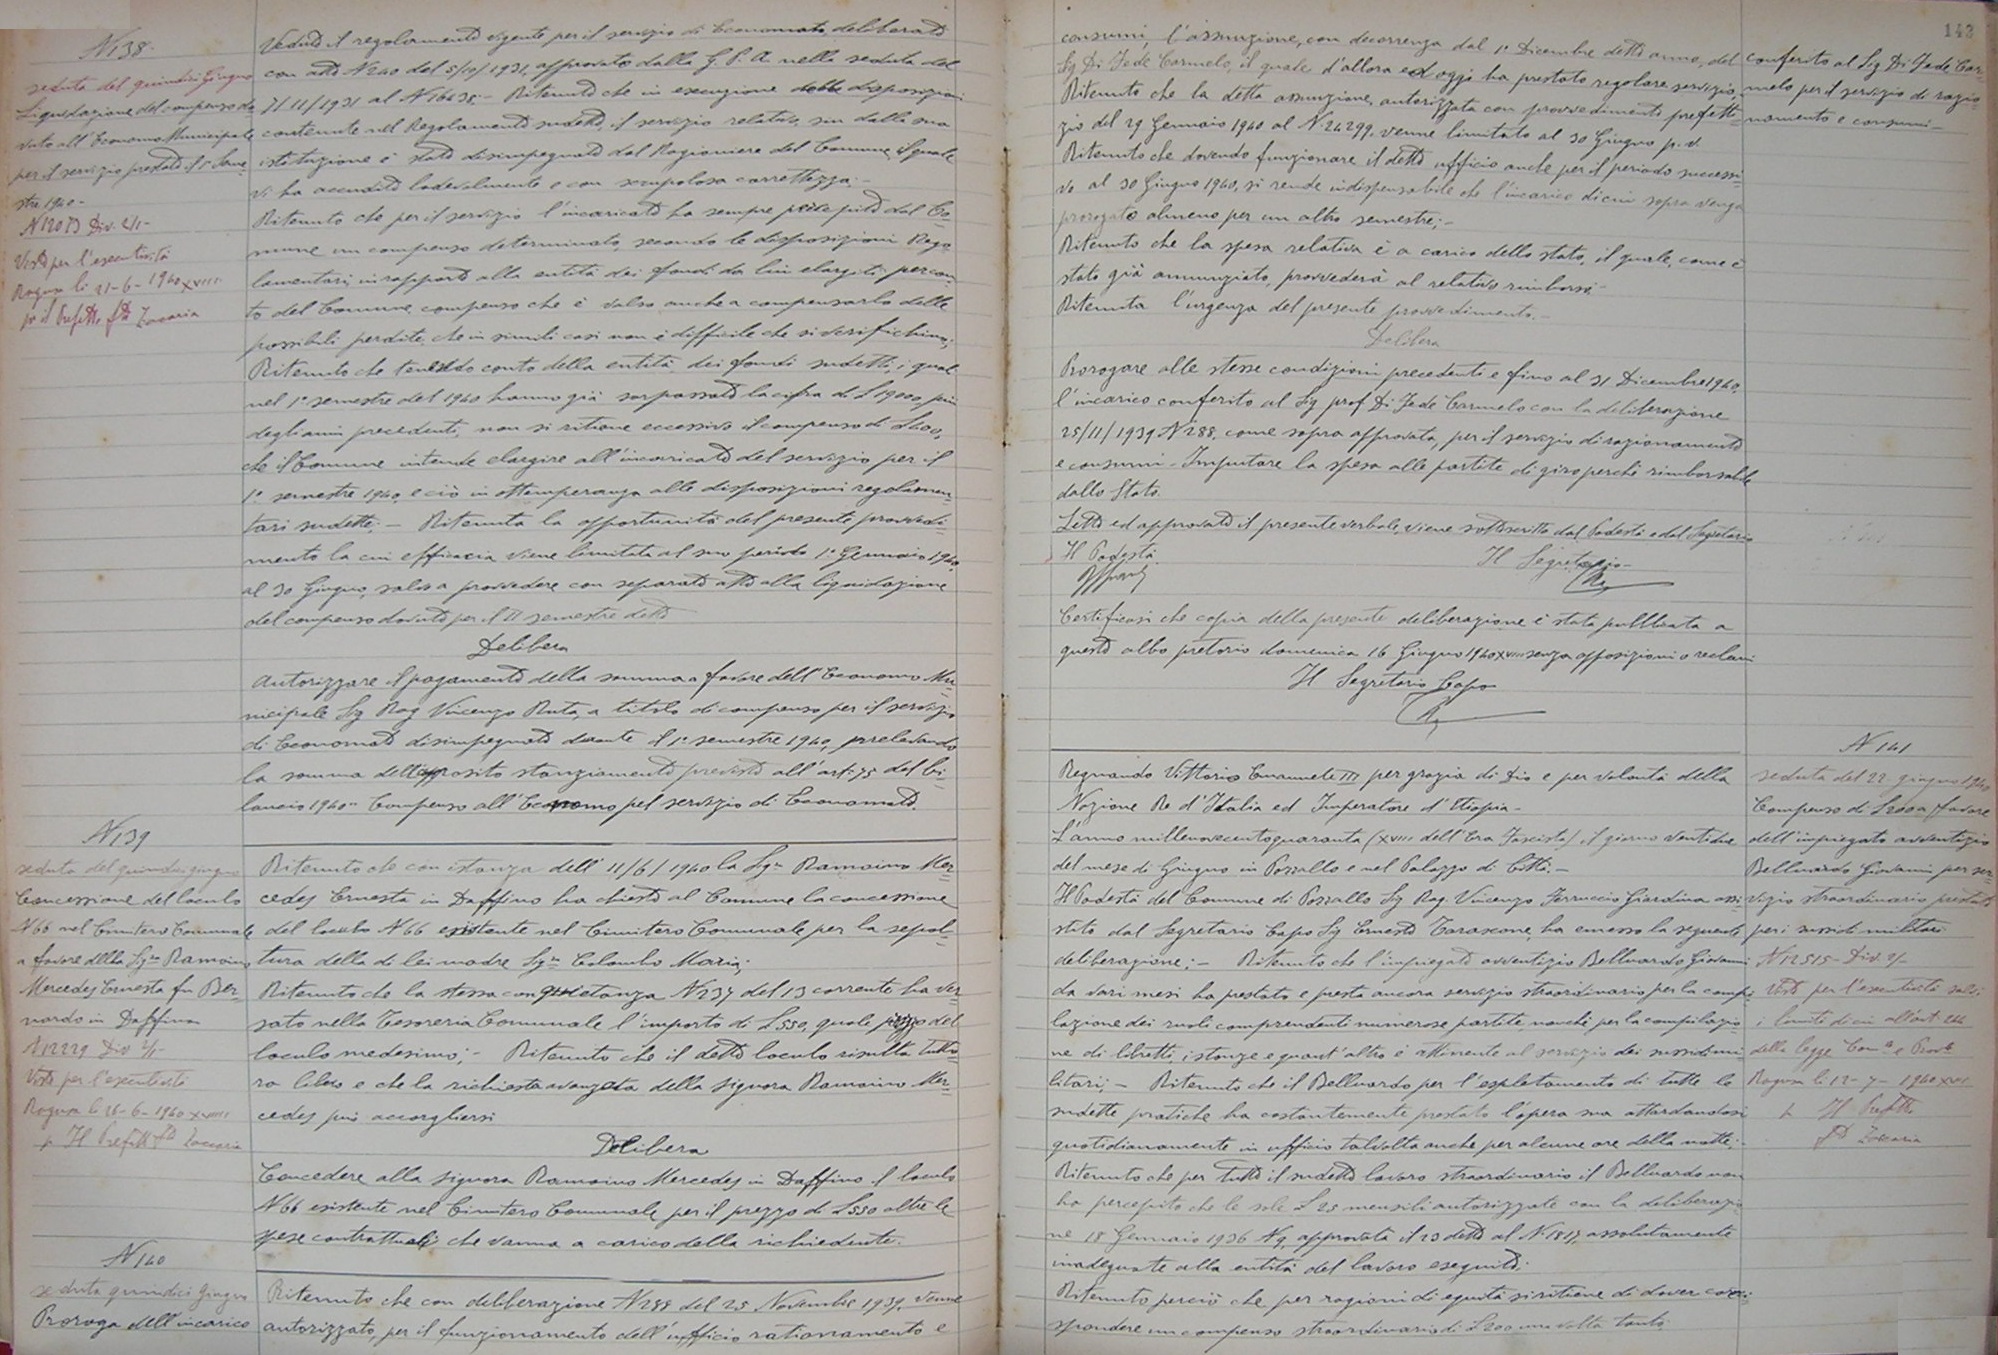 N 138
seduta del quindici Giugno
Liquidazione del compenso do
vuto all'Economo Municipale
per il servizio prestato il 1° Seme
stre 1940 -
N 12073 Div. 2/1 -
Visto per l'esecutività
Ragusa li 21-6-1940 XVIII
p. il Prefetto fto Zaccaria
Veduto il regolamento vigente per il servizio di Economato, deliberato
con atto N 240 del 5/10/1931, approvato dalla G. P. A. nella seduta del
7/11/1931 al N 16438 - Ritenuto che in esecuzione delle disposizioni
contenute nel Regolamento sudetto, il servizio relativo, sin dalla sua
istituzione è stato disimpegnato dal Ragioniere del Comune, il quale
vi ha accudito lodevolmente e con scrupolosa correttezza; -
Ritenuto che per il servizio l'incaricato ha sempre percepito dal Co=
mune un compenso determinato, secondo le disposizioni Rego
lamentari, in rapporto alla entità dei fondi da lui elargiti per con
to del Comune, compenso che è valso anche a compensarlo delle
possibili perdite, che in simili casi non è difficile che si verifichino;
Ritenuto che tenendo conto della entità dei fondi sudetti, i quali
nel 1° semestre del 1940 hanno già sorpassato la cifra di £ 19000, più
degli anni precedenti, non si ritiene eccessivo il compenso di £ 400,
che il Comune intende elargire all'incaricato del servizio per il
1° semestre 1940, e ciò in ottemperanza alle disposizioni regolamen=
tari sudette; - Ritenuta la opportunità del presente provvedi=
mento la cui efficacia viene limitata al suo periodo 1° Gennaio 1940
al 30 Giugno, salvo a provvedere con separato atto alla liquidazione
del compenso dovuto per il II semestre detto
Delibera
Autorizzare il pagamento della somma a favore dell'Economo Mu=
nicipale Sig Rag Vincenzo Ruta, a titolo di compenso per il servizio
di Economato disimpegnato durante il 1° semestre 1940, prelevando
la somma dell'apposito stanziamento previsto all'art. 75 del bi=
lancio 1940 " Compenso all'Economo pel servizio di Economato.
N 139
seduta del quindici giugno
Concessione del loculo
N 66 nel Cimitero Comunale
a favore della Sigra Ramoino
Mercedes Ernesta fu Ber=
nardo in Daffino
N 12229 Div 2/1 -
Visto per l'esecutività
Ragusa li 26-6-1940 XVIII
p. Il Prefetto fto Zaccaria
Ritenuto che con istanza dell'11/6/1940 la Sigra Ramoino Mer=
cedes Ernesta in Daffino ha chiesto al Comune la concessione
del loculo N 66 esistente nel Cimitero Comunale per la sepol=
tura della di lei madre Sigra Colombo Maria;
Ritenuto che la stessa con quietanza N 237 del 13 corrente ha ver=
sato nella Tesoreria Comunale l'importo di £ 550, quale prezzo del
loculo medesimo; - Ritenuto che il detto loculo risulta tutto=
ra libero e che la richiesta avanzata della signora Ramoino Mer=
cedes può accorgliersi
Delibera
Concedere alla signora Ramoino Mercedes in Daffino il loculo
N 66 esistente nel Cimitero Comunale per il prezzo di £ 550 oltre le
spese contrattuali che vanno a carico della richiedente.
N 140
seduta quindici Giugno
Proroga dell'incarico
Ritenuto che con deliberazione N 288 del 25 Novembre 1939, venne
autorizzato, per il funzionamento dell'ufficio razionamento e
143
consumi, l'assunzione, con decorrenza dal 1° Dicembre detto anno, del
Sig Di Fede Carmelo, il quale d'allora ed oggi ha prestato regolare servizio,
Ritenuto che la detta assunzione, autorizzata con provvedimento prefetti=
zio del 29 Gennaio 1940 al N 24299, venne limitata al 30 Giugno p. v.
Ritenuto che dovendo funzionare il detto ufficio anche per il periodo successi=
vo al 30 Giugno 1940, si rende indispensabile che l'incarico di cui sopra venga
prorogato almeno per un altro semestre; -
Ritenuto che la spesa relativa è a carico dello stato, il quale, come è
stato già annunziato, provvederà al relativo rimborso -
Ritenuta l'urgenza del presente provvedimento. -
Delibera
Prorogare alle stesse condizioni precedenti e fino al 31 Dicembre 1940,
l'incarico conferito al Sig prof Di Fede Carmelo con la deliberazione
25/11/1939 N 288, come sopra approvata, per il servizio di razionamento
e consumi - Imputare la spesa alle partite di giro perché rimborsabile
dallo Stato.
Letto ed approvato il presente verbale, viene sottoscritto dal Podestà e dal Segretario
Il Podestà
Il Segretario -
Certificasi che copia della presente deliberazione è stata pubblicata a
questo albo pretorio domenica 16 Giugno 1940 XVIII senza opposizioni o reclami
Il Segretario Capo
conferito al Sig Di Fede Car=
melo per il servizio di razio
namento e consumi -
Regnando Vittorio Emanuele III per grazia di Dio e per volontà della
Nazione Re d'Italia ed Imperatore d'Etiopia -
L'anno millenovecentoquaranta (XVIII dell'Era Fascista) il giorno ventidue
del mese di Giugno in Pozzallo e nel Palazzo di Città. -
Il Podestà del Comune di Pozzallo Sig Rag. Vincenzo Ferruccio Giardina assi=
stito dal Segretario Capo Sig Ernesto Tarascone, ha emesso la seguente
deliberazione; - Ritenuto che l'impiegato avventizio Belluardo Giovanni
da vari mesi ha prestato e presta ancora servizio straordinario per la compi
lazione dei ruoli comprendenti numerose partite nonché per la compilazio
ne di libretti, istanze e quant'altro è attinente al servizio dei sussidi mi
litari; - Ritenuto che il Belluardo per l'espletamento di tutte le
sudette pratiche ha costantemente prestato l'opera sua attardandosi
quotidianamente in ufficio talvolta anche per alcune ore della notte; -
Ritenuto che per tutto il sudetto lavoro straordinario il Belluardo non
ha percepito che le sole £ 25 mensili autorizzate con la deliberazio
ne 18 Gennaio 1936 N 9, approvata il 23 detto al N 1817, assolutamente
inadeguate alla entità del lavoro eseguito;
Ritenuto perciò che per ragioni di equità si ritiene di dover corri=
spondere un compenso straordinario di £ 200 una volta tanto.
N 141
seduta del 22 giugno 1940
Compenso di £ 200 a favore
dell'impiegato avventizio
Belluardo Giovanni per ser=
vizio straordinario prestato
per i sussidi militari
N 12515 - Div. 2/1 -
Visto per l'esecutività salvi
i limiti di cui all'art. 244
della legge Comle e Provle
Ragusa li 12-7-1940 XVIII
p. Il Prefetto
fto Zaccaria